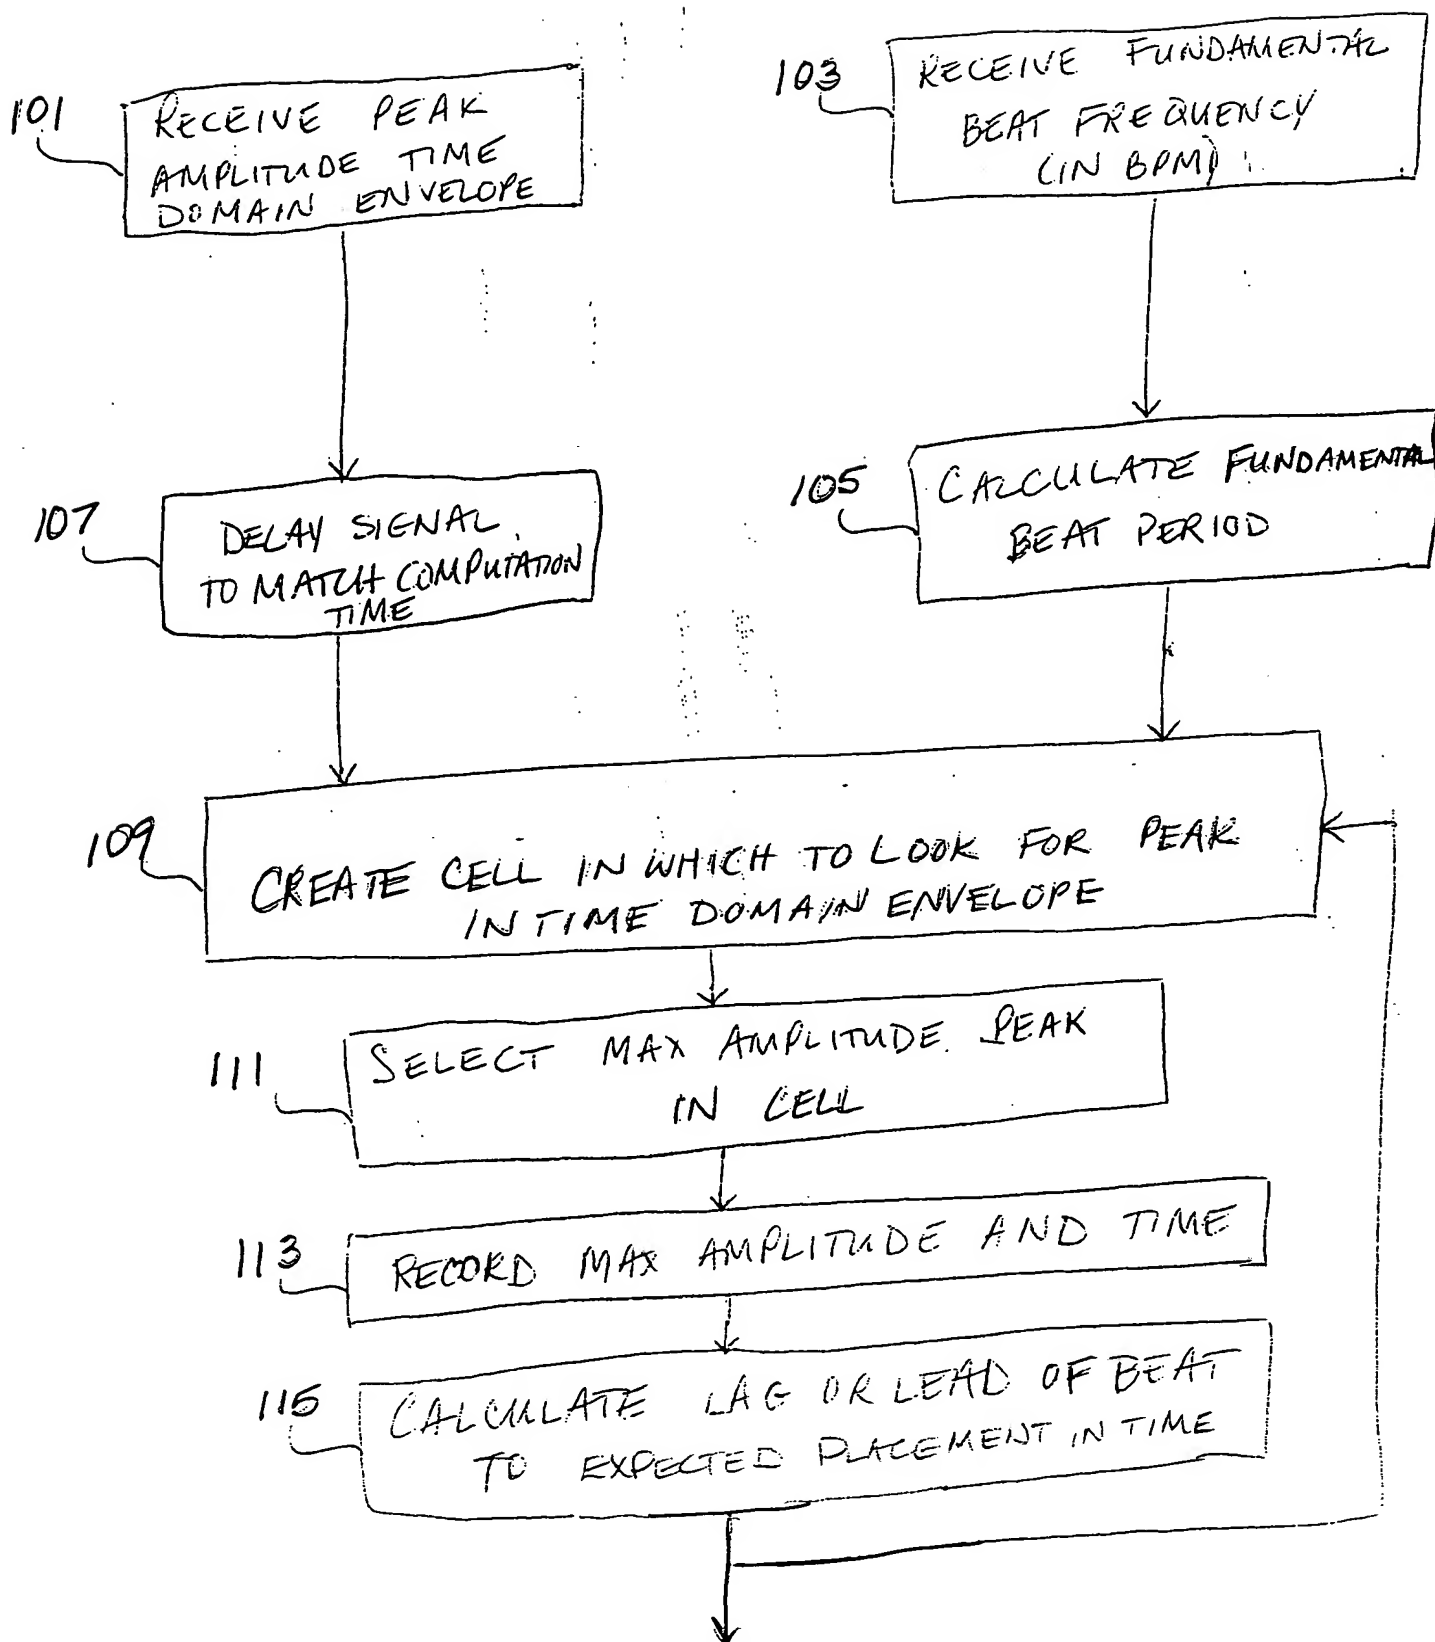 101
RECEIVE PEAK
AMPLITUDE TIME
DOMAIN ENVELOPE
103
RECEIVE FUNDAMENTAL
BEAT FREQUENCY
(IN BPM)
107
DELAY SIGNAL
TO MATCH COMPUTATION
TIME
105
CALCULATE FUNDAMENTAL
BEAT PERIOD
109
CREATE CELL IN WHICH TO LOOK FOR PEAK
IN TIME DOMAIN ENVELOPE
111
SELECT MAX AMPLITUDE PEAK
IN CELL
113
RECORD MAX AMPLITUDE AND TIME
115
CALCULATE LAG OR LEAD OF BEAT
TO EXPECTED PLACEMENT IN TIME